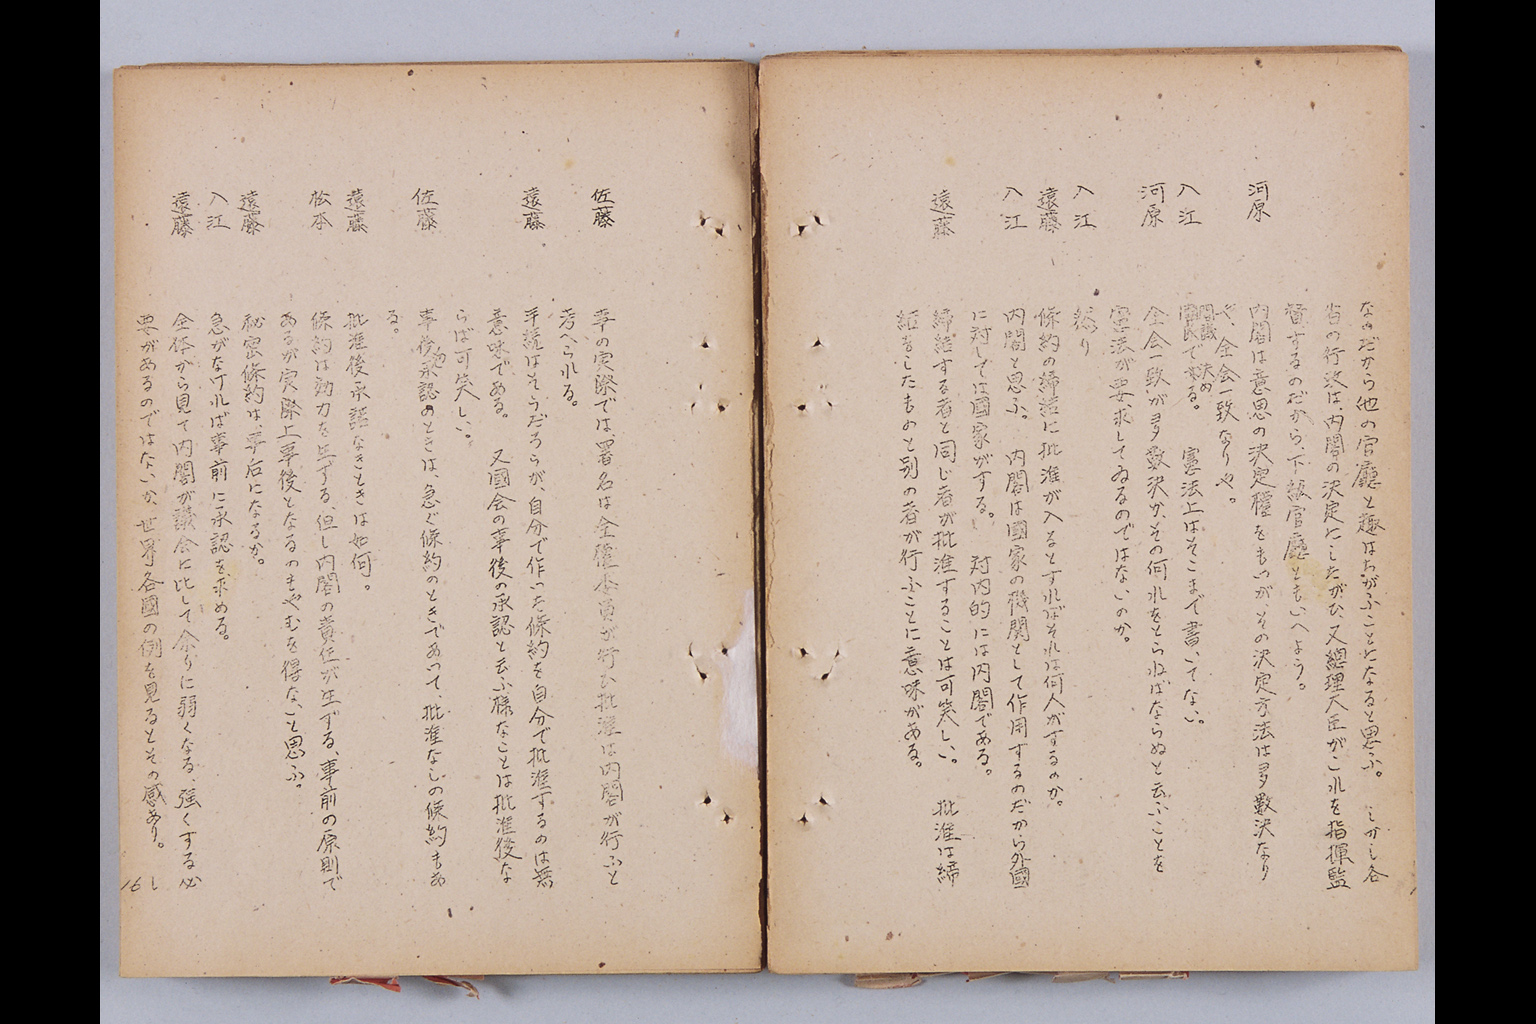 なのだから他の官廳と趣はちがふことになると思ふ。しかし各
省の行政は、内閣の決定にしたがひ、又總理大臣がこれを指揮監
督するのだから、下級官廳ともいへよう。
河原 内閣は意思の決定權をもつが、その決定方法は多數決なり
や、全会一致なりや。
入江 閣議で決める。憲法上はそこまで書いてない。
河原 全会一致か多数決か、その何れをとらねばならぬと云ふことを
憲法が要求してゐるのではないのか。
入江 然り
遠藤 條約の締結に批准が入るとすればそれは何人がするのか。
入江 内閣と思ふ。内閣は國家の機関として作用するのだから外國
に対しては國家がする。対内的には内閣である。
遠藤 締結する者と同じ者が批准することは可笑しい。批准は締
結をしたものと別の者が行ふことに意味がある。
佐藤 事の実際では、署名は全權委員が行ひ批准は内閣が行ふと
考へられる。
遠藤 手続はそうだろうが、自分で作った條約を自分で批准するのは無
意味である。又國会の事後の承認と云ふ様なことは批准後な
らば可笑しい。
佐藤 事後承認のときは、急ぐ條約のときであって、批准なしの條約もあ
る。
遠藤 批准後承認なきときは如何。
松本 條約は効力を生ずる、但し内閣の責任が生ずる、事前の原則で
あるが実際上事後となるのもやむを得ないと思ふ。
遠藤 秘密條約は、事后になるか。
入江 急がなければ事前に承認を求める。
遠藤 全体から見て内閣が議会に比して余りに弱くなる、強くする必
要があるのではないか、世界各國の例を見るとその感あり。
16